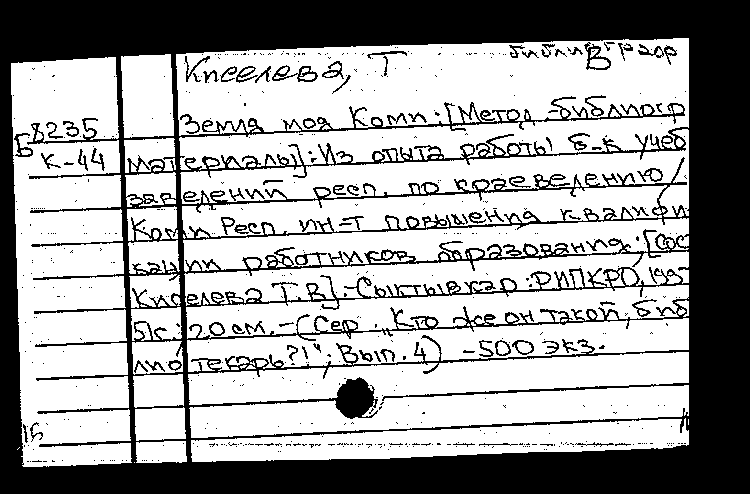 библиограф
Киселева, Т В
Б 8235 Земля моя Коми: [Метод.-библиогр
К-44 материалы]: Из опыта работы б-к учеб
заведений респ. по краеведению /
Коми Респ. ин-т повышения квалифи
кации работников образования; [Сос
Киселева Т.В.].-Сыктывкар: РИПКРО, 199
51с.; 20 см. - (Сер. "Кто же он такой, биб
лиотекарь?!"; Вып. 4) - 500 экз.